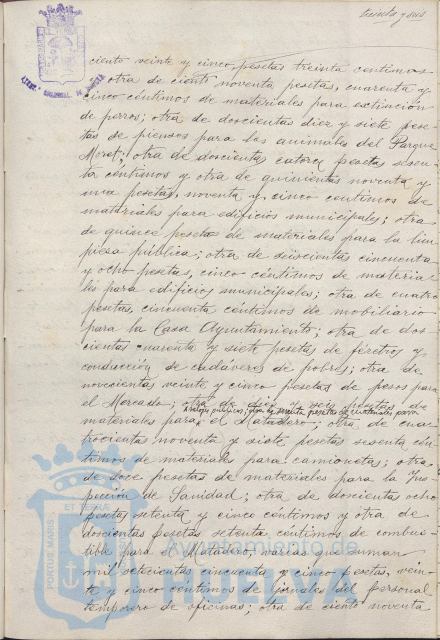 treinta y seis
ciento veinte y cinco pesetas treinta centimos
otra de ciento noventa pesetas, cuarenta y
cinco céntimos de materiales para extinción
de perros; otra de doscientas diez y siete pese-
tas de piensos para los animales del Parque
Moret; otra de doscientas catorce pesetas sesen-
ta céntimos y otra de quinientas noventa y
una pesetas, noventa y cinco centimos de
materiales para edificios municipales; otra
de quince pesetas de materiales para la lim-
pieza pública; otra de seiscientas cincuenta
y ocho pesetas, cinco céntimos de materia-
les para edificios municipales; otra de cuatro
pesetas, cincuenta céntimos de mobiliario
para la Casa Ayuntamiento; otra de dos-
cientas cuarenta y siete pesetas de féretros y
conducción de cadáveres de pobres; otra de
novecientas veinte y cinco pesetas de pesos para
el Mercado; otra de diez y seis pesetas de
relojes públicos; otra de sesenta pesetas de para
materiales para el Matadero; otra de cua-
trocientas noventa y siete pesetas sesenta cén-
timos de materiales para camionetas; otra
de doce pesetas de materiales para la Ins-
pección de Sanidad; otra de doscientas ocho
pesetas setenta y cinco céntimos y otra de
doscientas pesetas setenta céntimos de combus-
tible para el Matadero, varias que suman
mil setecientas cincuenta y cinco pesetas, vein-
te y cinco céntimos de jornales del personal
temporero de oficinas; otra de ciento noventa
PORTUS MARIS
ET TERRAE
Ayuntamiento de
HUELVA